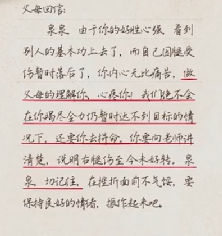 父母回信:
泉泉 由于你的好胜心强 看到
别人的基本功上去了,而自己因腿受
伤暂时落后了,你内心无比痛苦,做
父母的理解你,心疼你!我们绝不会
在你竭尽全力仍暂时达不到目标的情
况下,还要你去拼命。你要向老师讲
清楚,说明右腿伤至今未好转。泉
泉 切记住,在挫折面前不气馁,要
保持良好的情绪,振作起来吧。